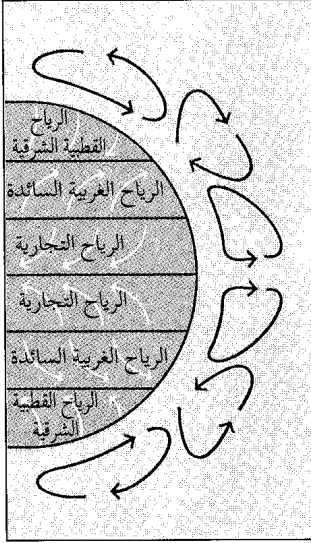 الرياح
القطبية الشرقية
الرياح الغربية السائدة
الرياح التجارية
الرياح التجارية
الرياح الغربية السائدة
الرياح القطبية
الشرقية